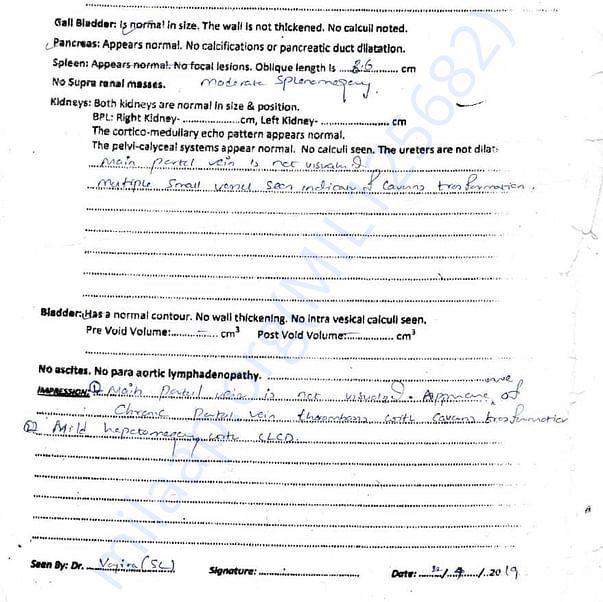 Gall Bladder: Is normal in size. The wall is not thickened. No calculi noted.
Pancreas: Appears normal. No calcifications or pancreatic duct dilatation.
Spleen: Appears normal. No focal lesions. Oblique length is ..... 8.6 ..... cm
No Supra renal masses. moderate Splenomegaly.
Kidneys: Both kidneys are normal in size & position.
BPL: Right Kidney- ....................cm, Left Kidney- ........................ cm
The cortico-medullary echo pattern appears normal.
The pelvi-calyceal systems appear normal. No calculi seen. The ureters are not dilat
Main portal vein is not visualized
multiple small vessel seen indicating of cavans transformation.
Bladder: Has a normal contour. No wall thickening. No intra vesical calculi seen.
Pre Void Volume:..............cm³ Post Void Volume:................. cm³
No ascites. No para aortic lymphadenopathy.
IMPRESSION: ① Main portal vein is not visualized. Appearance of
Chronic portal vein thrombosis with cavans transformation
② Mild hepatomegaly with CLCD.
Seen By: Dr. Vajira (SL) Signature: .......................... Date: ..../4/..2019
milaap.org (MIL 125682)